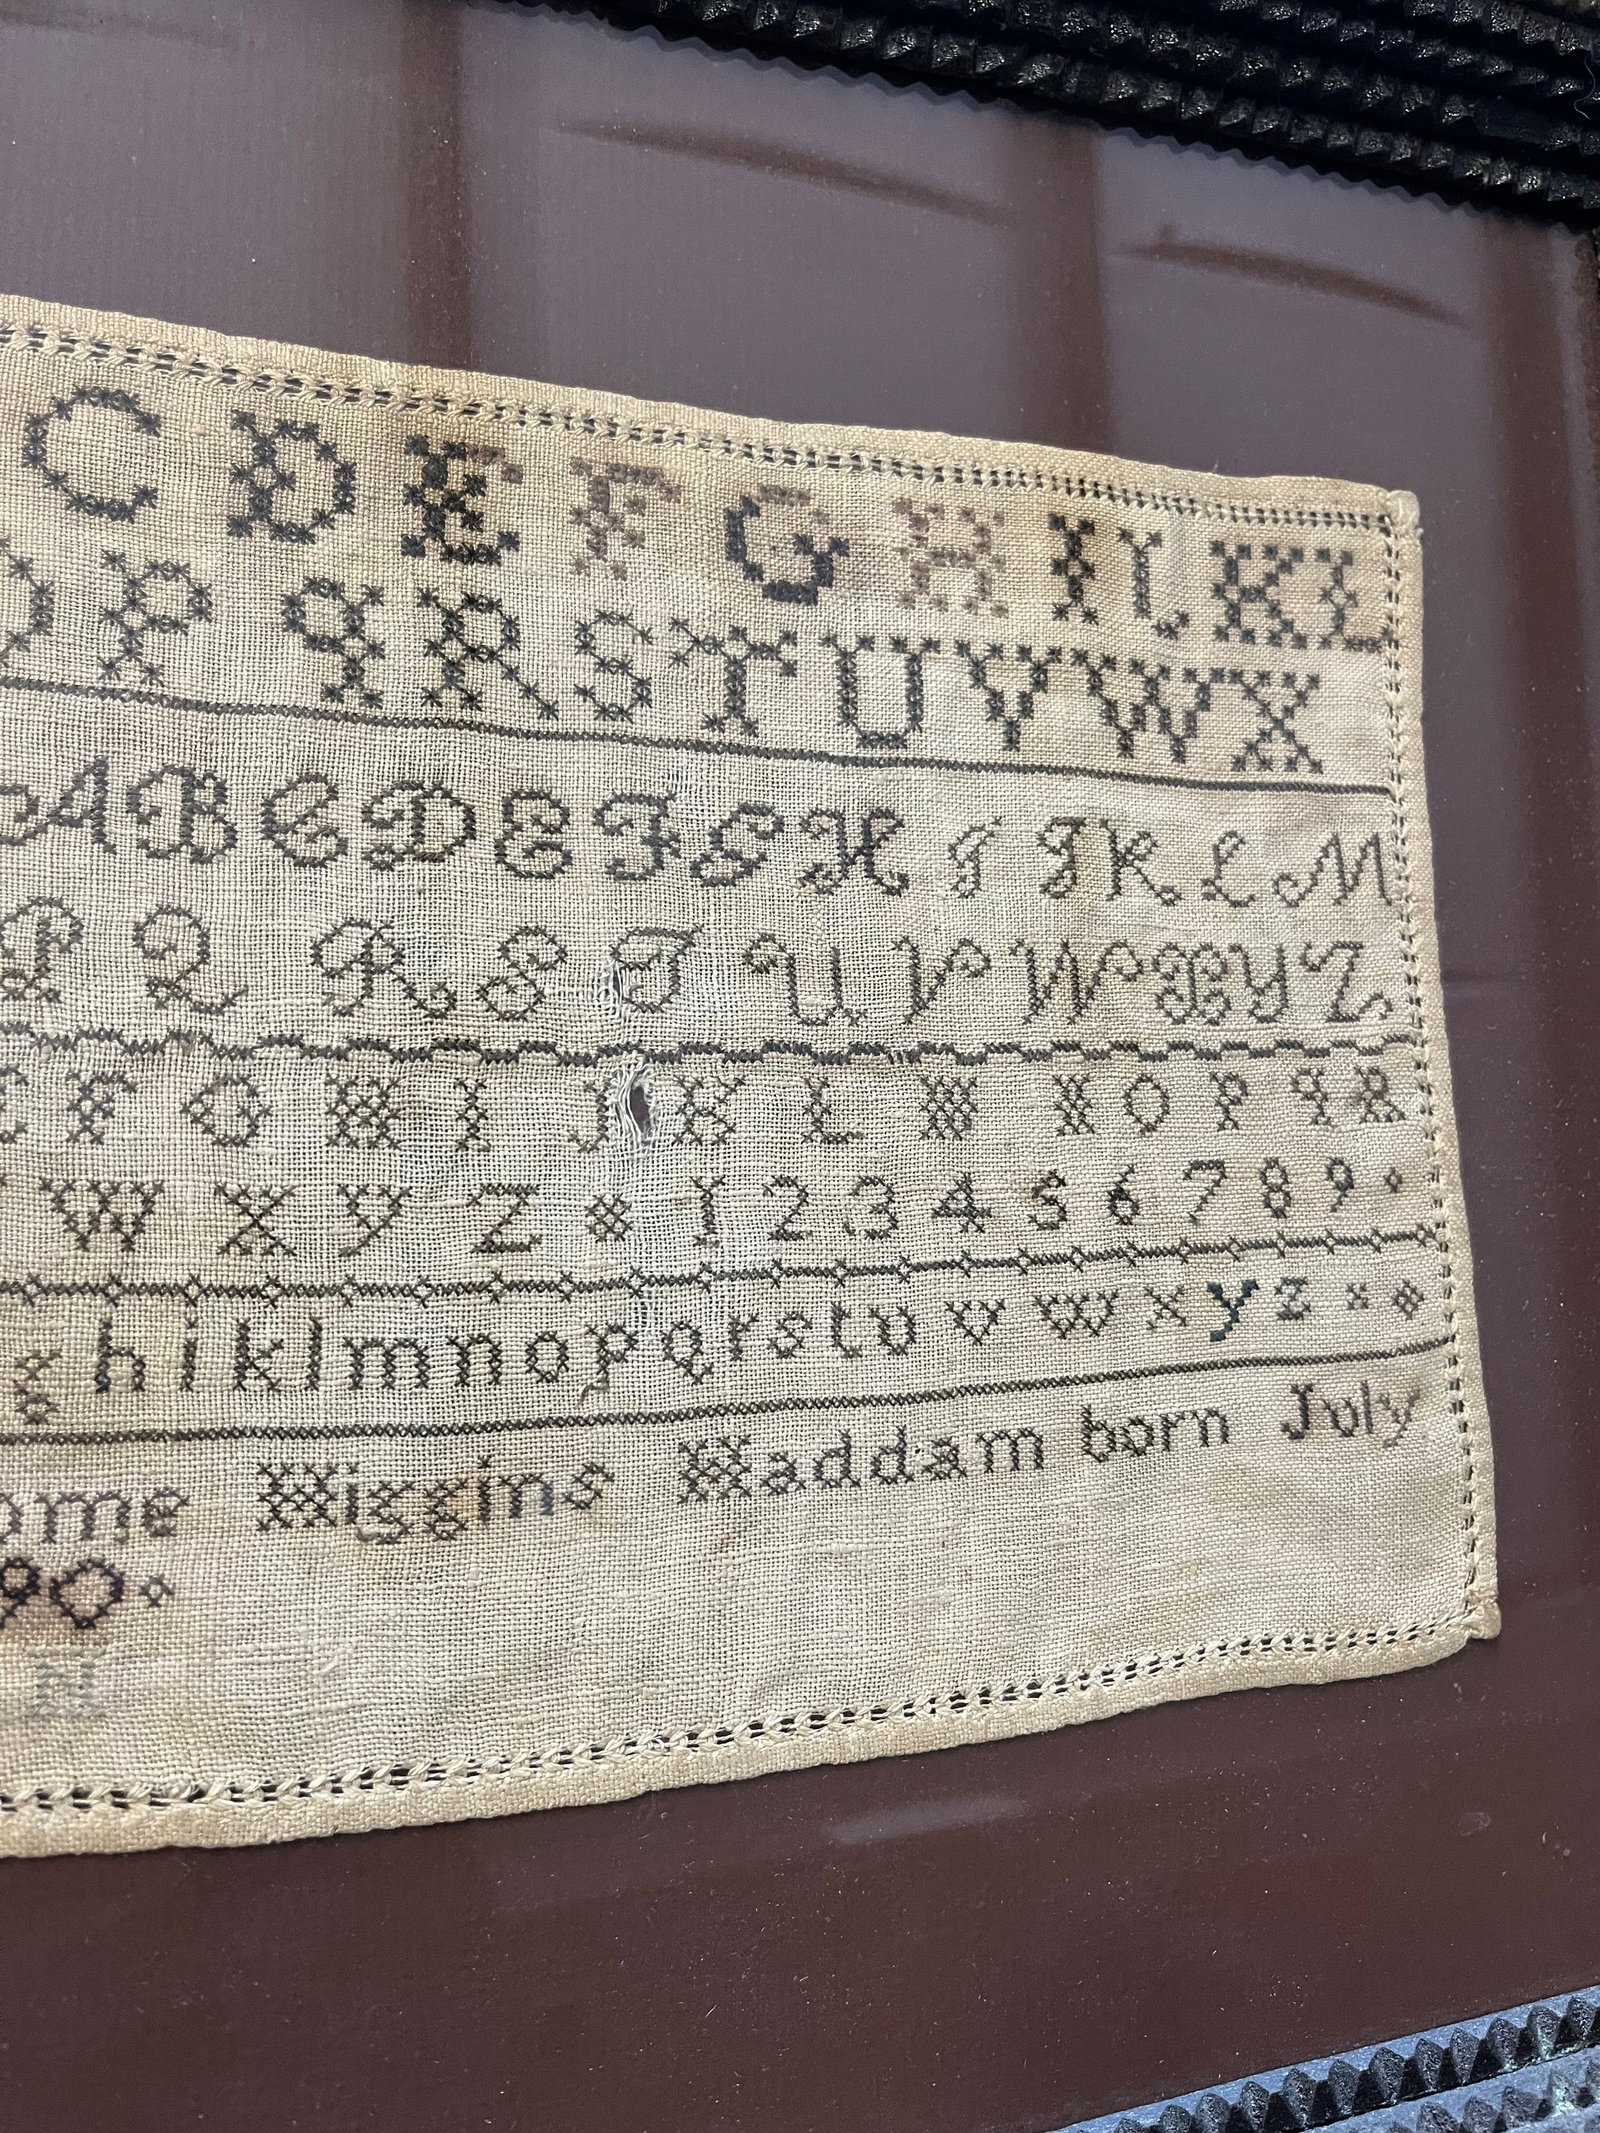 C D E F G H I J K L
P Q R S T U V W X
A B C D E F G H I J K L M
P Q R S T U V W X Y Z
E F G H I J K L M N O P Q R
W X Y Z 1 2 3 4 5 6 7 8 9
g h i k l m n o p q r s t u v w x y z
ome Higgins Haddam born July
90